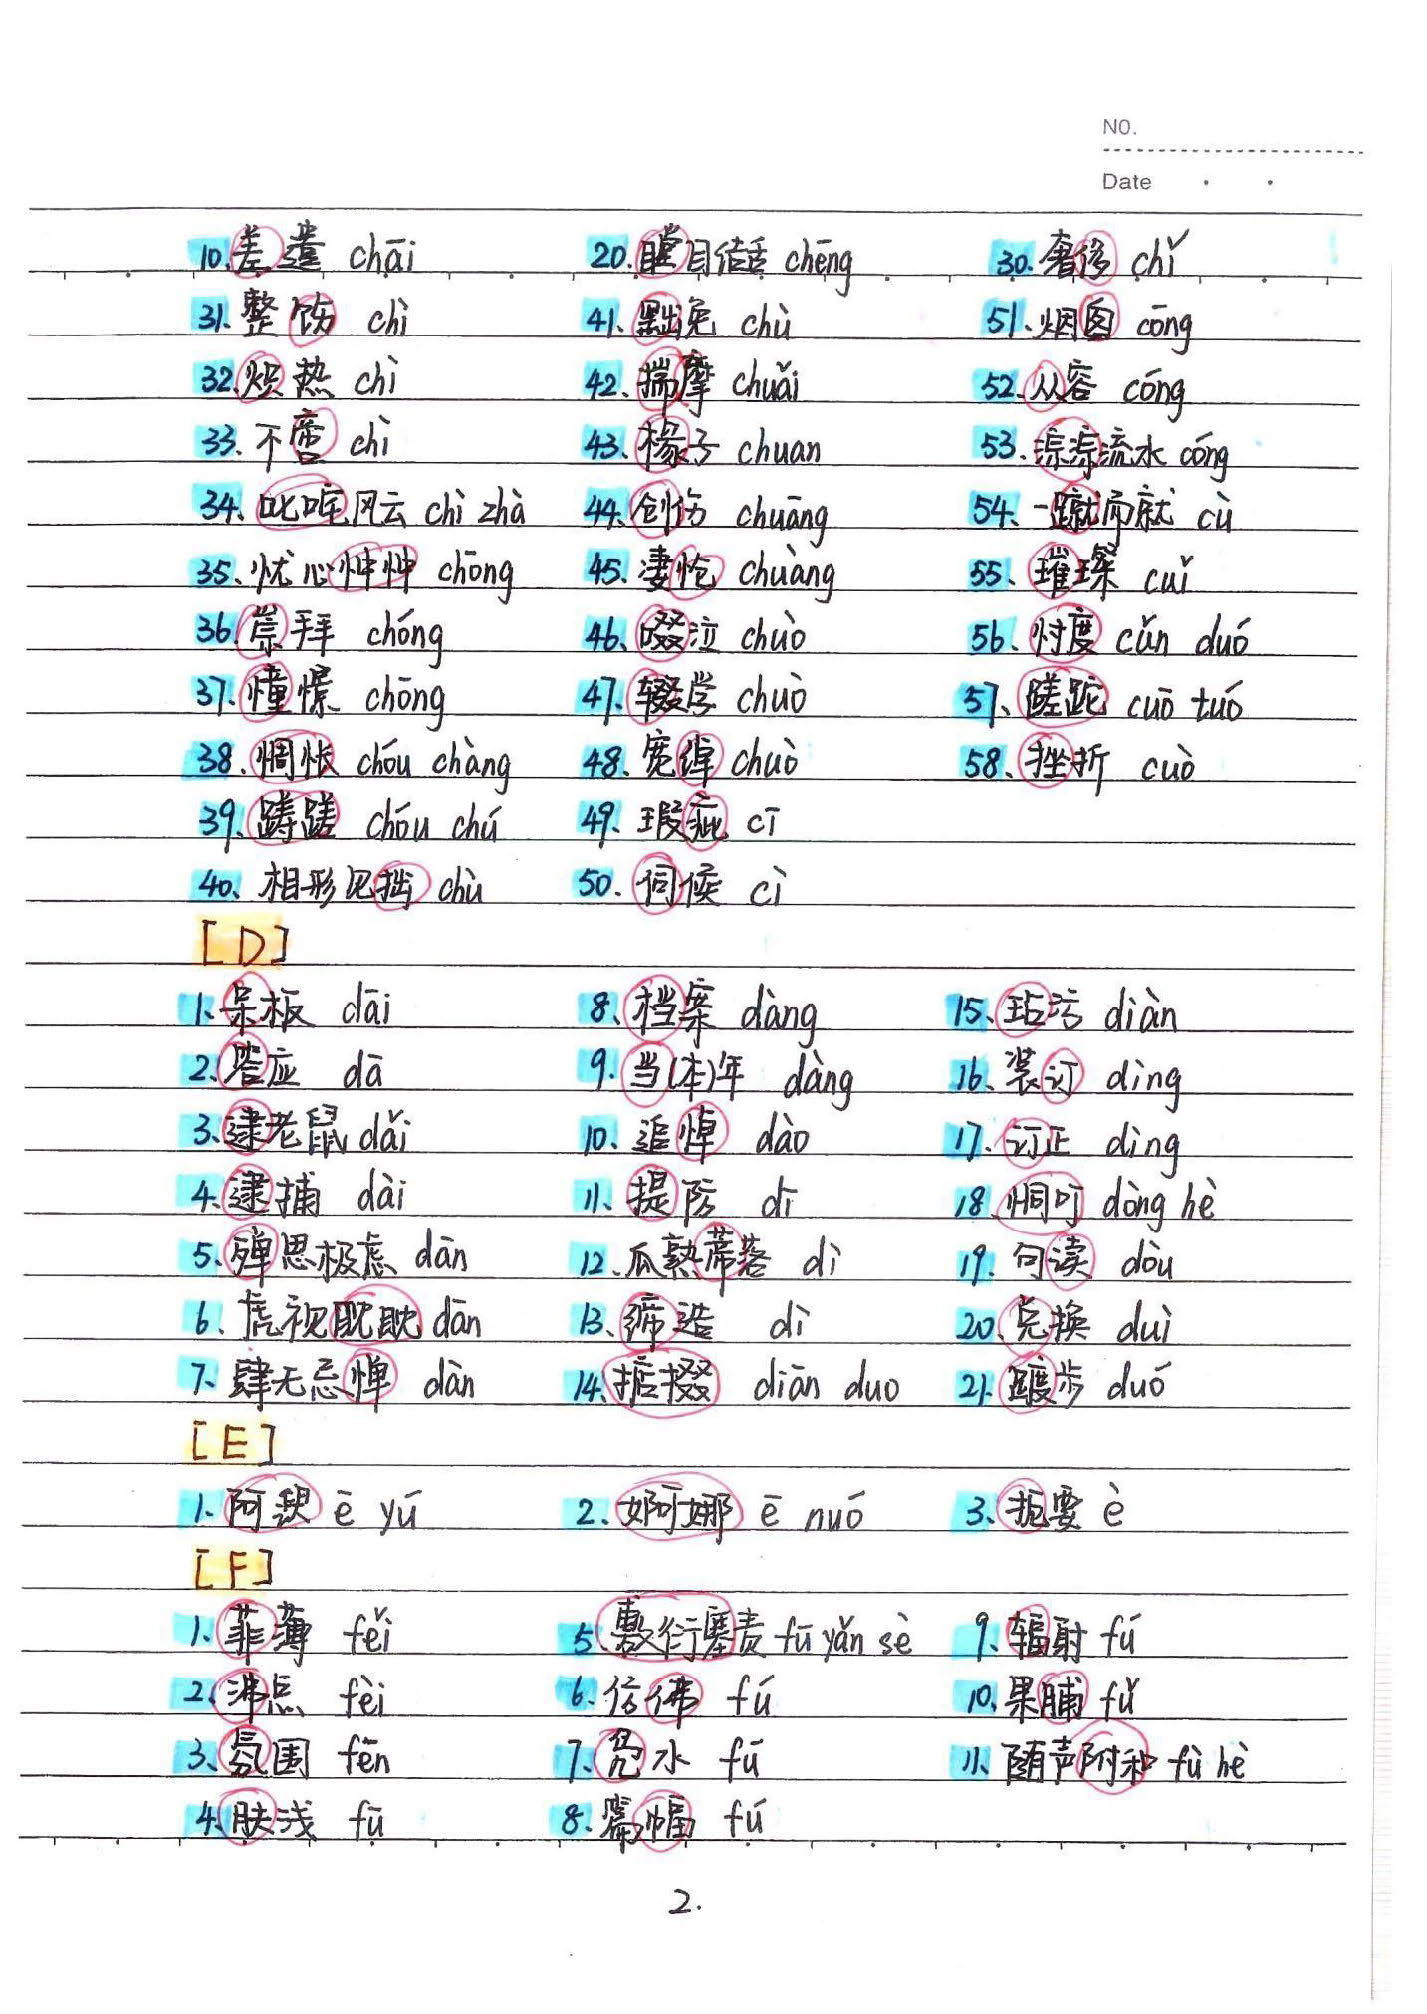 NO.
Date
10. 差遣 chāi 20. 瞠目结舌 chēng 30. 奢侈 chǐ
31. 整饬 chì 41. 黜免 chù 51. 烟囱 cōng
32. 炽热 chì 42. 揣摩 chuǎi 52. 从容 cóng
33. 不啻 chì 43. 椽子 chuan 53. 淙淙流水 cóng
34. 叱咤风云 chì zhà 44. 创伤 chuāng 54. 一蹴而就 cù
35. 忧心忡忡 chōng 45. 凄怆 chuàng 55. 璀璨 cuǐ
36. 崇拜 chóng 46. 啜泣 chuò 56. 忖度 cǔn duó
37. 憧憬 chōng 47. 辍学 chuò 57. 蹉跎 cuō tuó
38. 惆怅 chóu chàng 48. 宽绰 chuò 58. 挫折 cuò
39. 踌躇 chóu chú 49. 瑕疵 cī
40. 相形见拙 chù 50. 伺候 cì
[D]
1. 呆板 dāi 8. 档案 dàng 15. 玷污 diàn
2. 答应 dā 9. 当(本)年 dàng 16. 装订 dìng
3. 逮老鼠 dǎi 10. 追悼 dào 17. 订正 dìng
4. 逮捕 dài 11. 提防 dī 18. 恫吓 dòng hè
5. 殚思极虑 dān 12. 瓜熟蒂落 dì 19. 句读 dòu
6. 虎视眈眈 dān 13. 缔造 dì 20. 兑换 duì
7. 肆无忌惮 dàn 14. 掂掇 diān duo 21. 踱步 duó
[E]
1. 阿谀 ē yú 2. 婀娜 ē nuó 3. 扼要 è
[F]
1. 菲薄 fěi 5. 敷衍塞责 fū yǎn sè 9. 辐射 fú
2. 沸点 fèi 6. 仿佛 fú 10. 果脯 fǔ
3. 氛围 fēn 7. 凫水 fú 11. 随声附和 fù hè
4. 肤浅 fū 8. 篇幅 fú
2.